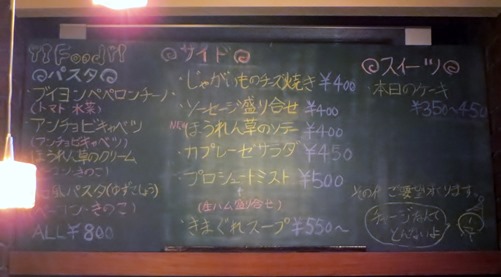 !!Food!!
パスタ
・ブイヨンペペロンチーノ
(トマト 水菜)
アンチョビキャベツ
(アンチョビキャベツ)
ほうれん草のクリーム
きのこ)
パスタ(ゆずこしょう)
ベーコン・きのこ)
ALL ¥800
サイド
・じゃがいものチーズ焼き ¥400
・ソーセージ盛り合せ ¥400
NEW ほうれん草のソテー ¥400
・カプレーゼサラダ ¥450
・プロシュートミスト ¥500
(生ハム盛り合せ)
・きまぐれスープ ¥550〜
スイーツ
・本日のケーキ
¥350〜450
その他ご要望承ります。
チャージ
とんないよ!